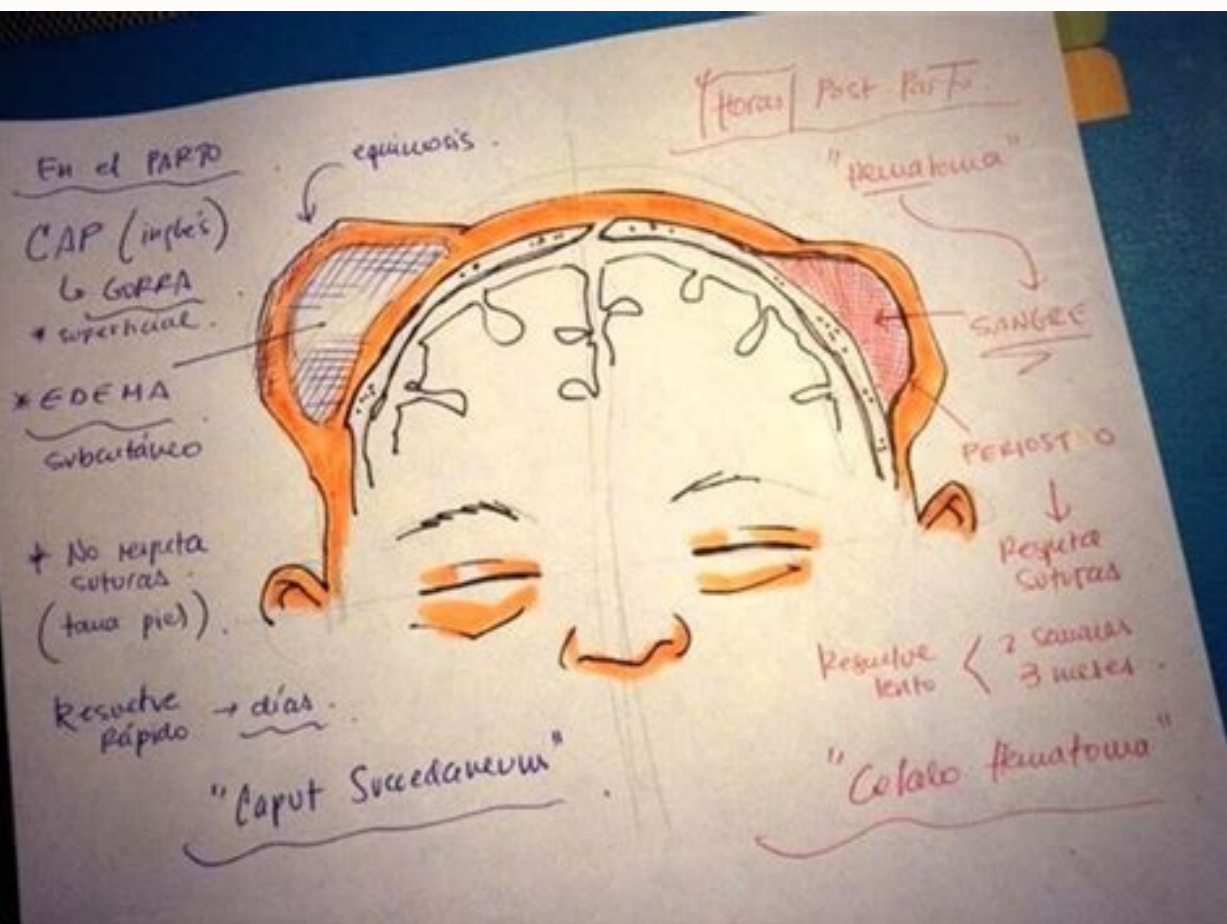 En el PARTO
equimosis.
CAP (inglés)
↳ GORRA
* superficial.
* EDEMA
subcutáneo
+ No respeta
suturas
(tama piel).
Resuelve
Rápido → días.
"Caput Succedaneum"
Horas Post Parto
"Hematoma"
SANGRE
PERIOSTIO
↓
Respeta
suturas
Resuelve
lento < 2 semanas
3 meses.
"Cefalo Hematoma"